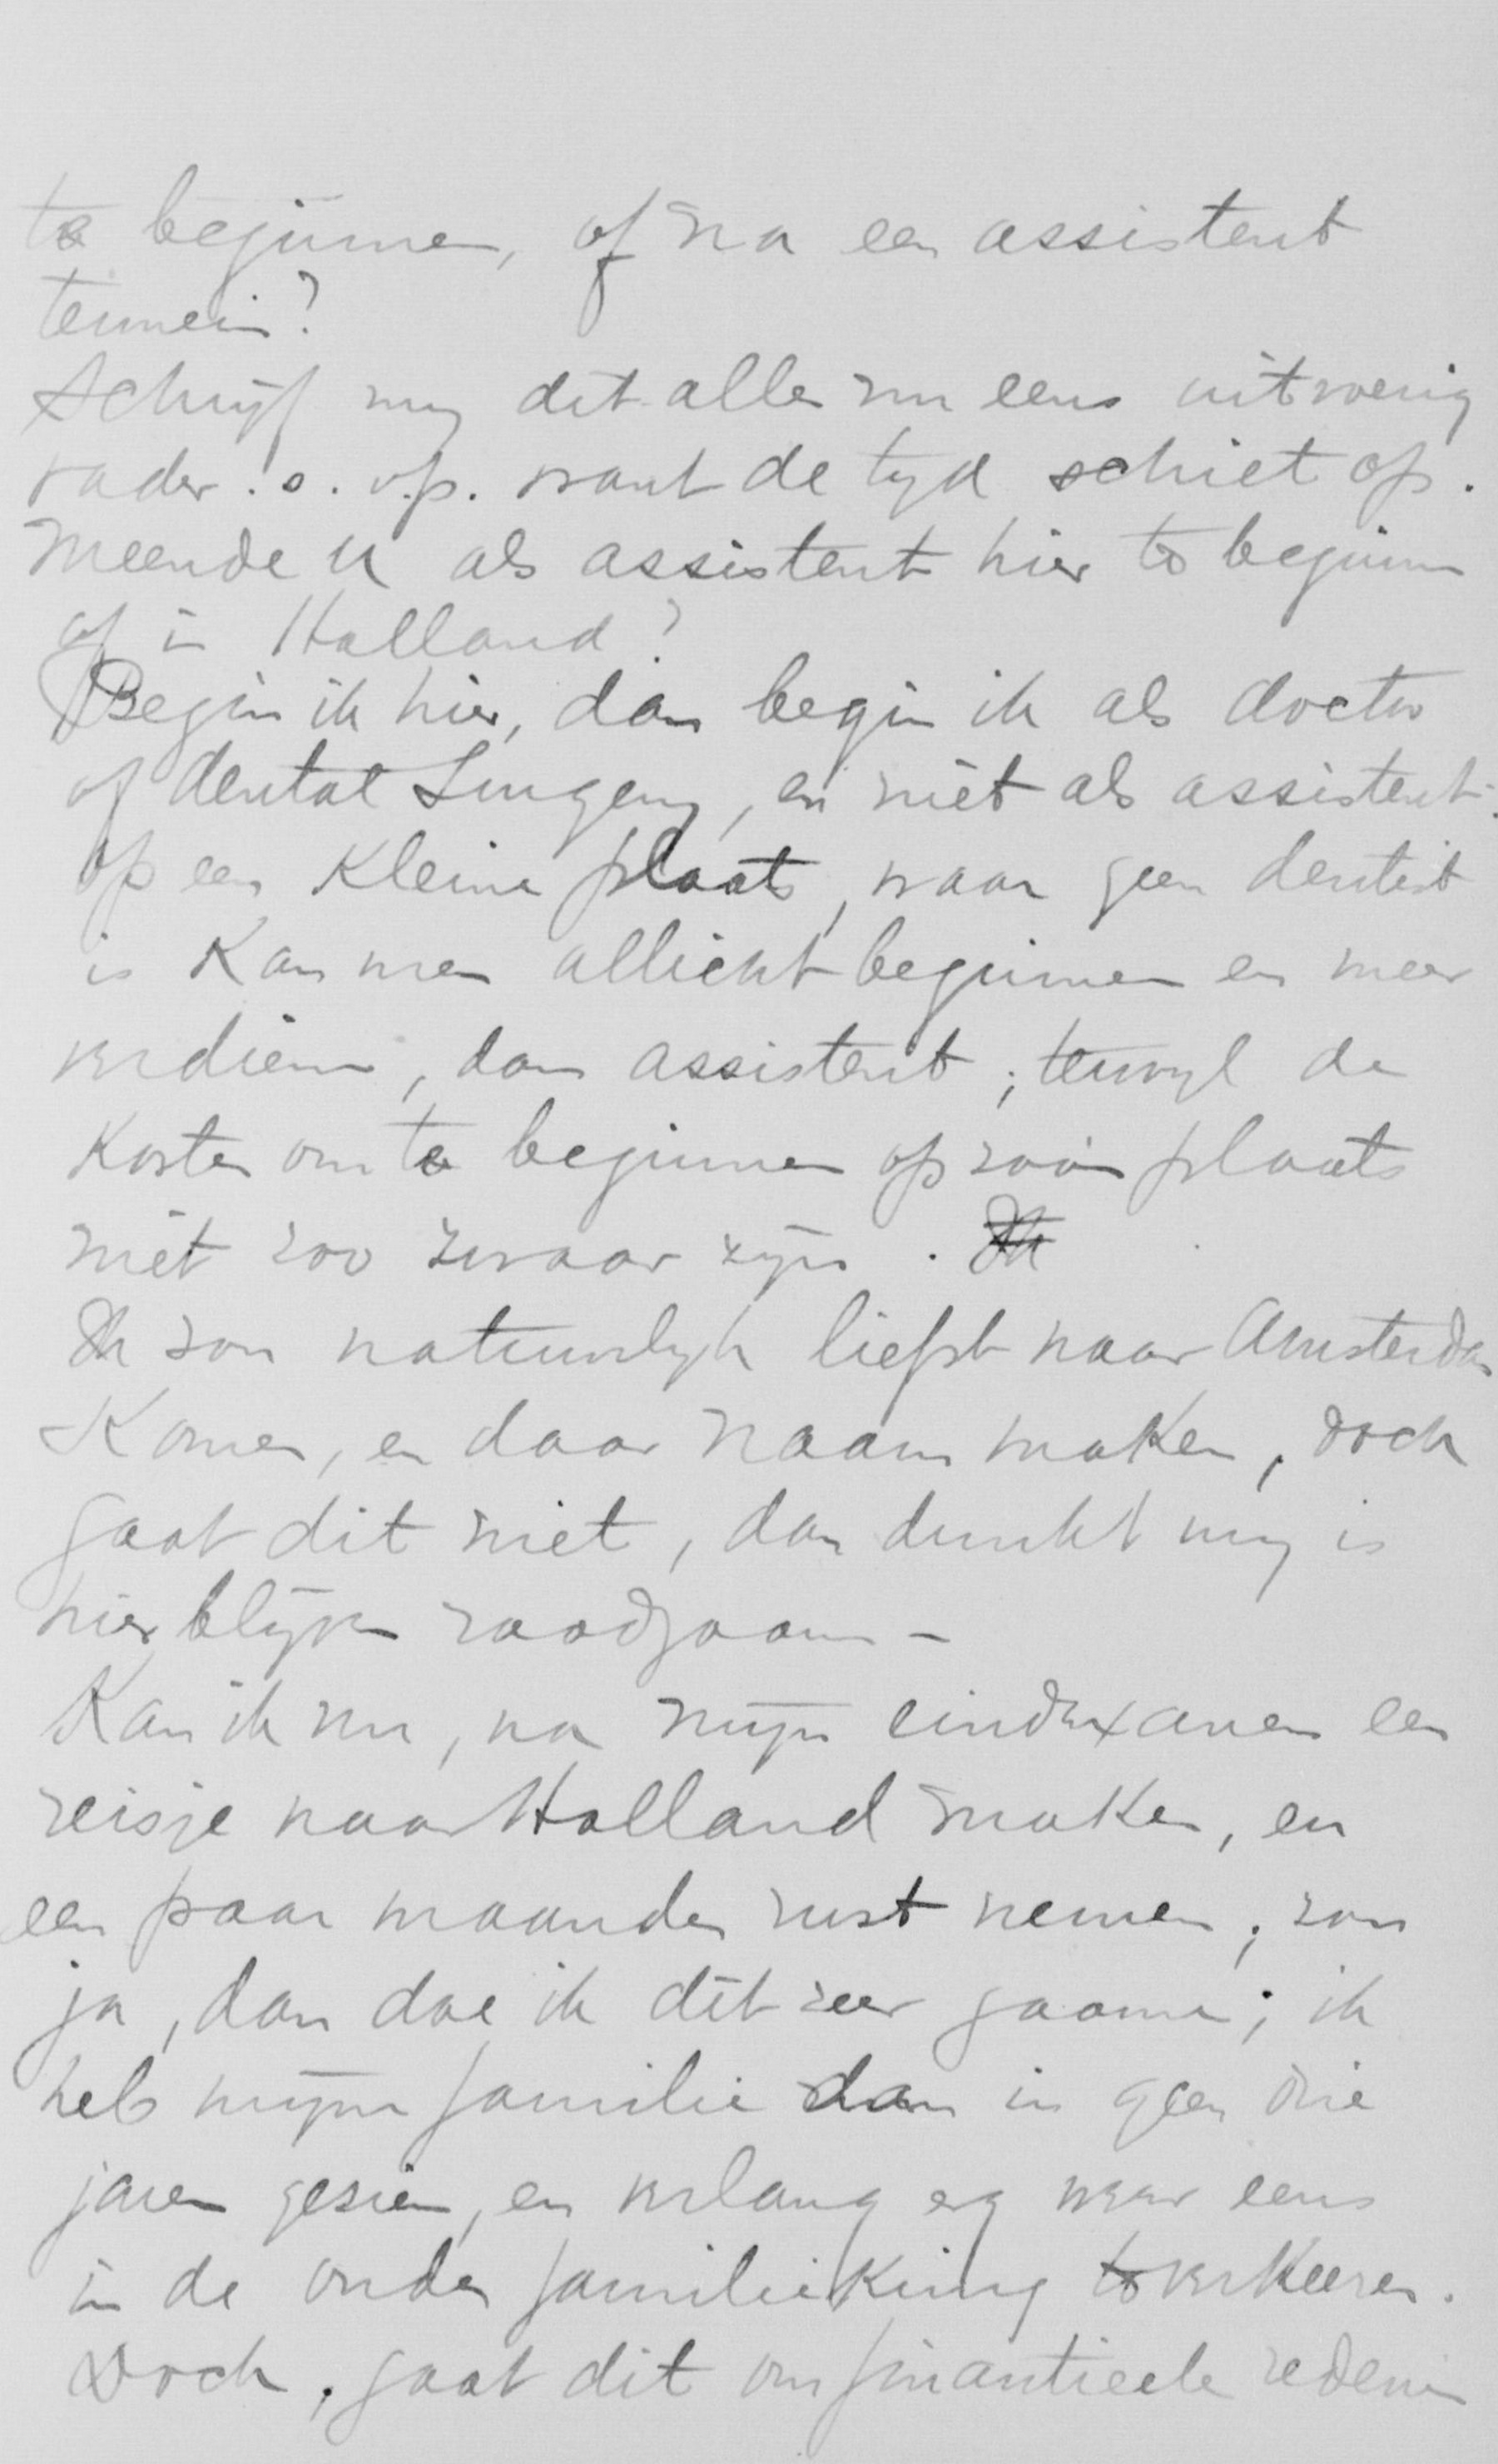 te beginnen, of na een assistent
termein?
Schrijf my dit alles nu eens uitvoerig
vader. s. v.p. want de tyd schiet op.
Meende U als assistent hier te beginnen
of in Holland?
Begin ik hier, dan begin ik als doctor
of dental Surgery, en niet als assistent.
Op een kleine plaats, waar geen dentist
is kan men allicht beginnen en meer
verdienen, dan assistent; terwyl de
kosten om te beginnen op zoo'n plaats
niet zoo zwaar zyn. Ik
Ik zou natuurlyk liefst naar Amsterdam
komen, en daar naam maken, doch
gaat dit niet, dan dunkt my is
hier blyven raadzaam -
Kan ik nu, na mijn eindexamen een
reisje naar Holland maken, en
een paar maanden rust nemen; zou
ja, dan doe ik dit zeer gaarne; ik
heb mijn familie dan in geen drie
jaren gezien, en verlang erg weer eens
in de ouden familiekring te verkeeren.
Doch, gaat dit om finantieele redenen